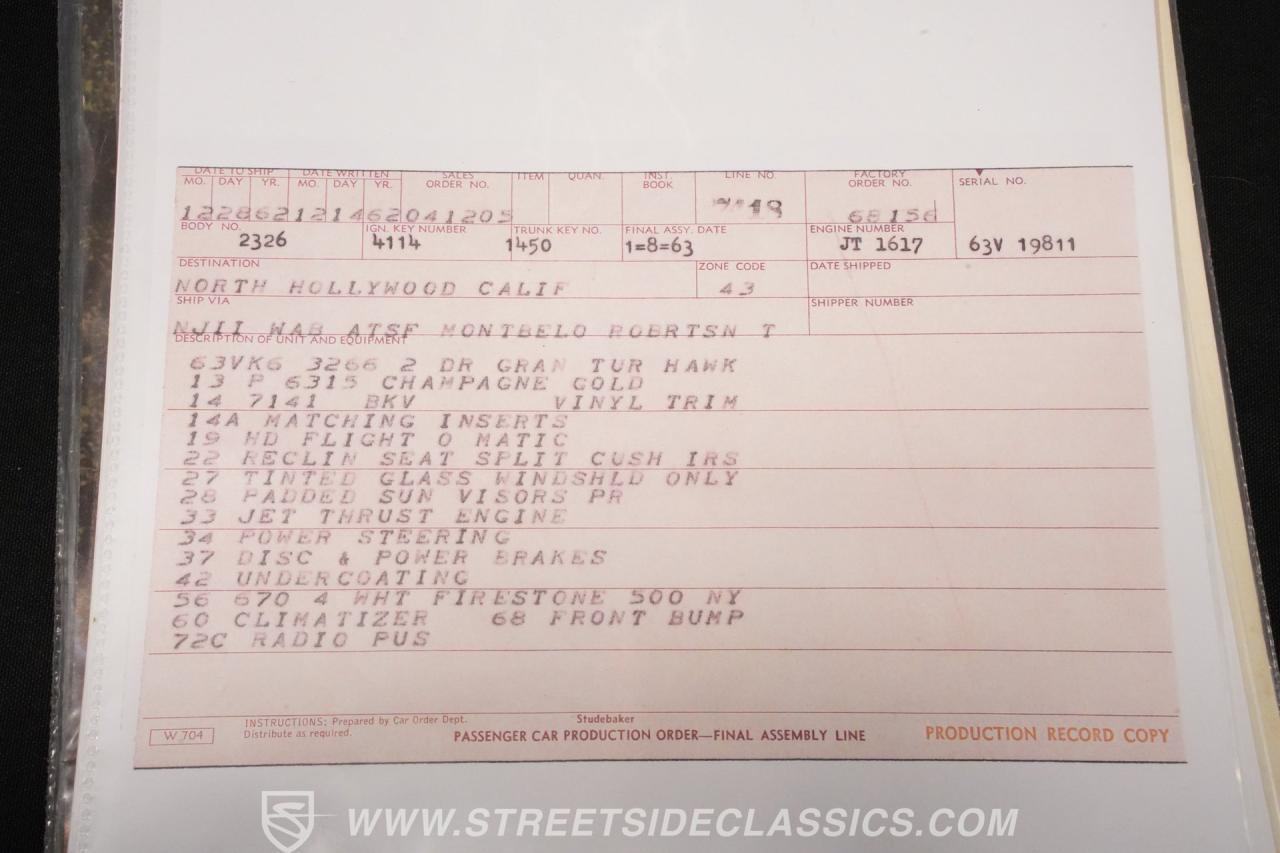 DATE TO SHIP DATE WRITTEN SALES ITEM QUAN. INST. LINE NO. FACTORY SERIAL NO.
MO. DAY YR. MO. DAY YR. ORDER NO. BOOK ORDER NO.
122862121462041205 19 68156
BODY NO. IGN. KEY NUMBER TRUNK KEY NO. FINAL ASSY. DATE ENGINE NUMBER
2326 4114 1450 1=8=63 JT 1617 63V 19811
DESTINATION ZONE CODE DATE SHIPPED
NORTH HOLLYWOOD CALIF 43
SHIP VIA SHIPPER NUMBER
NJII WAB ATSF MONTBELO ROBERTSN T
DESCRIPTION OF UNIT AND EQUIPMENT
63VK6 3266 2 DR GRAN TUR HAWK
13 P 6315 CHAMPAGNE GOLD
14 7141 BKV VINYL TRIM
14A MATCHING INSERTS
19 HD FLIGHT O MATIC
22 RECLIN SEAT SPLIT CUSH IRS
27 TINTED GLASS WINDSHLD ONLY
28 PADDED SUN VISORS PR
33 JET THRUST ENGINE
34 POWER STEERING
37 DISC & POWER BRAKES
42 UNDERCOATING
56 670 4 WHT FIRESTONE 500 NY
60 CLIMATIZER 68 FRONT BUMP
72C RADIO PUS
W 704
INSTRUCTIONS: Prepared by Car Order Dept.
Distribute as required.
Studebaker
PASSENGER CAR PRODUCTION ORDER—FINAL ASSEMBLY LINE
PRODUCTION RECORD COPY
WWW.STREETSIDECLASSICS.COM